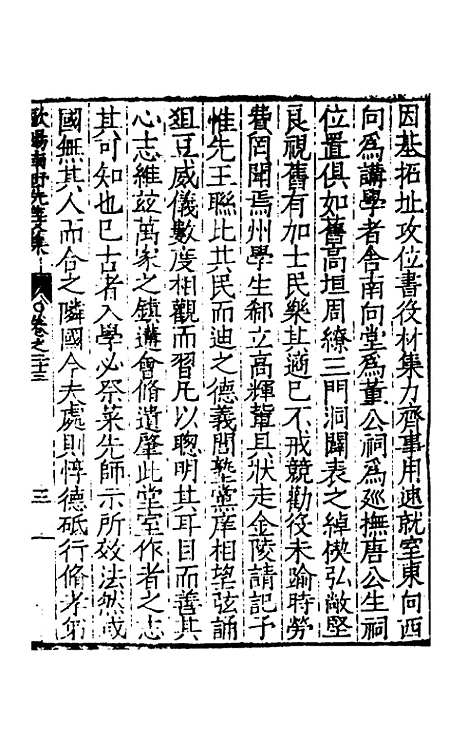 因基拓址攻位書役材集力齊事用速就室東向西
向為講學者舍南向堂為董公祠為廵撫唐公生祠
位置俱如舊高垣周繚三門洞闢表之綽楔弘敞堅
良視舊有加士民樂其適已不戒競勸役未踰時勞
費罔聞焉州學生郗立高輝軰具狀走金陵請記予
惟先王聮比其民而迪之德義閭塾黨庠相望弦誦
狙豆威儀數度相觀而習凡以聰明其耳目而善其
心志維兹萬家之鎮講會脩遺肇此堂室作者之志
其可知也已古者入學必祭菜先師示所效法然或
國無其人而合之隣國今夫處則惇德砥行脩孝弟
歐陽南野先生文集 卷之二十三
三